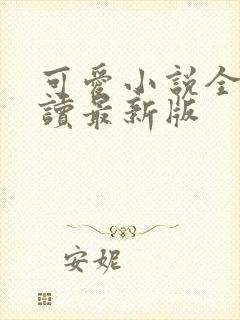 可愛小說全
讀最新版
安妮